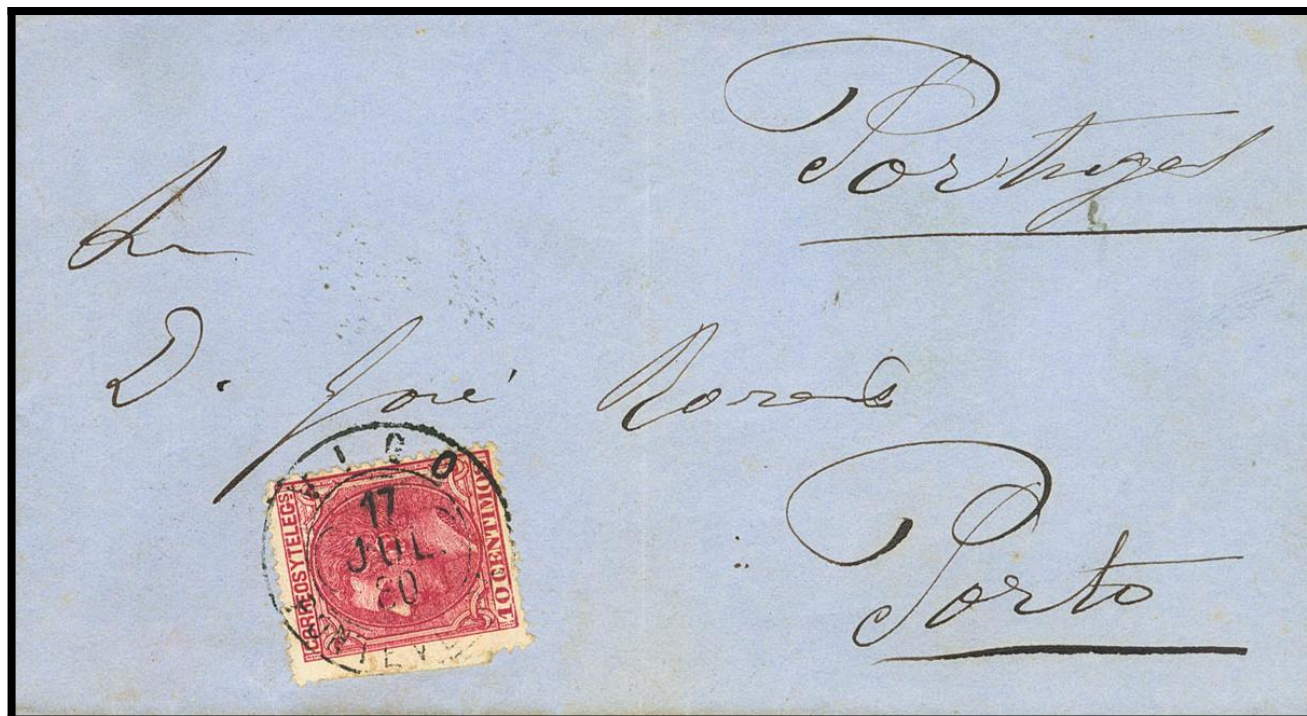 Portugal
D. José
Porto
VIGO
17
JUL.
80
CORREOS Y TELEGS
10 CENTIMOS